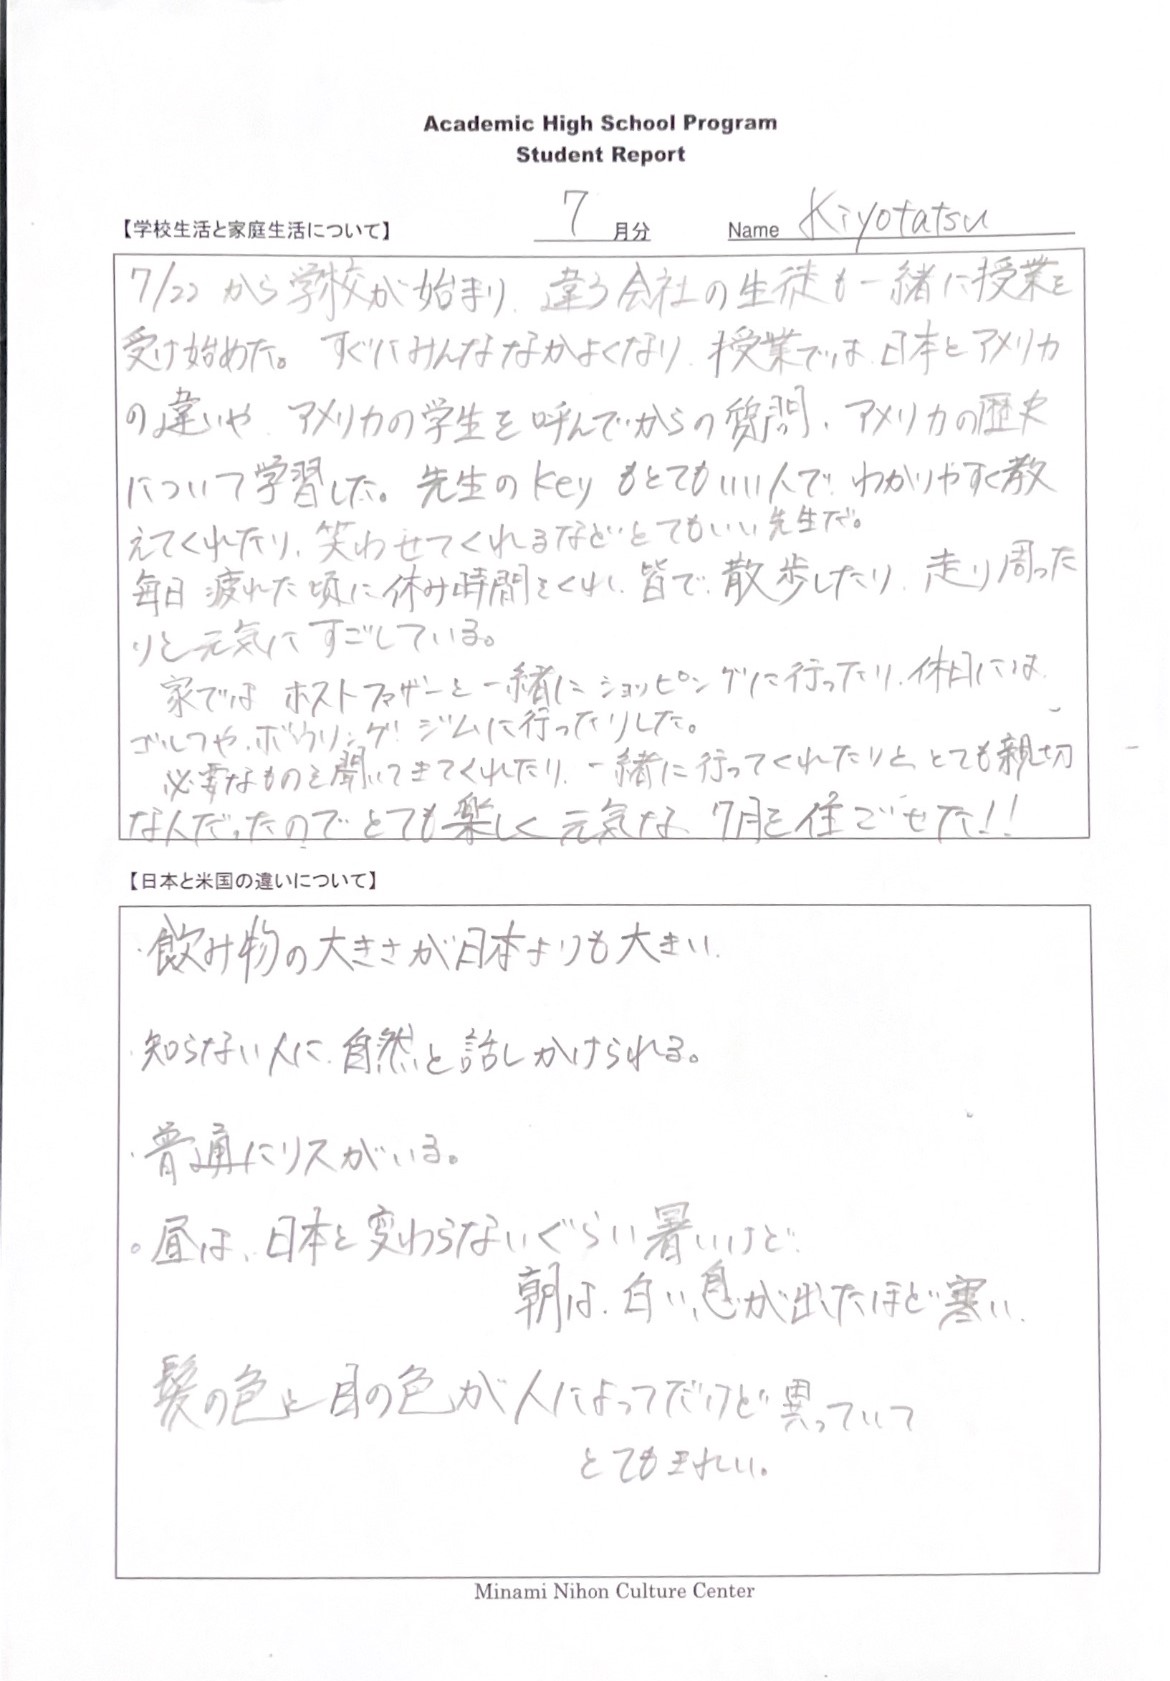 Academic High School Program
Student Report
【学校生活と家庭生活について】 7 月分 Name Kiyotatsu
7/22 から学校が始まり、違う会社の生徒も一緒に授業を
受け始めた。すぐにみんななかよくなり、授業では、日本とアメリカ
の違いや、アメリカの学生を呼んでからの質問、アメリカの歴史
について学習した。先生のKeyもとてもいい人で、わかりやすく教
えてくれたり、笑わせてくれるなどとてもいい先生だ。
毎日 疲れた頃に休み時間をくれ、皆で、散歩したり、走り周った
りと元気にすごしている。
家では ホストファザーと一緒にショッピングに行ったり、休日には、
ゴルフや、ボウリング、ジムに行ったりした。
必要なものを聞いてきてくれたり、一緒に行ってくれたりと、とても親切
な人だったのでとても楽しく 元気な、7月を住ごせた!!
【日本と米国の違いについて】
・飲み物の大きさが日本よりも大きい。
・知らない人に、自然と話しかけられる。
・普通にリスがいる。
。昼は、日本と変わらないぐらい暑いけど、
朝は、白い息が出たほど寒い。
髪の色と目の色が人によってだけど異っていて
とてもきれい。
Minami Nihon Culture Center